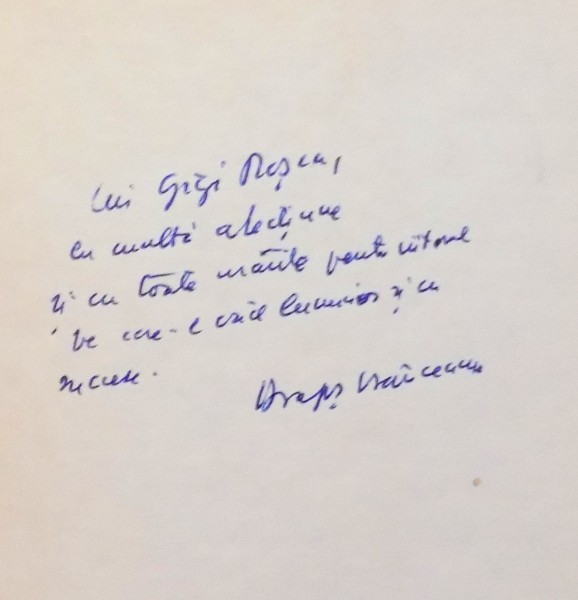 Lui Gigi Roșca,
cu multă afecțiune
și cu toate urările pentru viitorul
pe care-l cred luminos și cu
succese.
Dragoș Vrânceanu